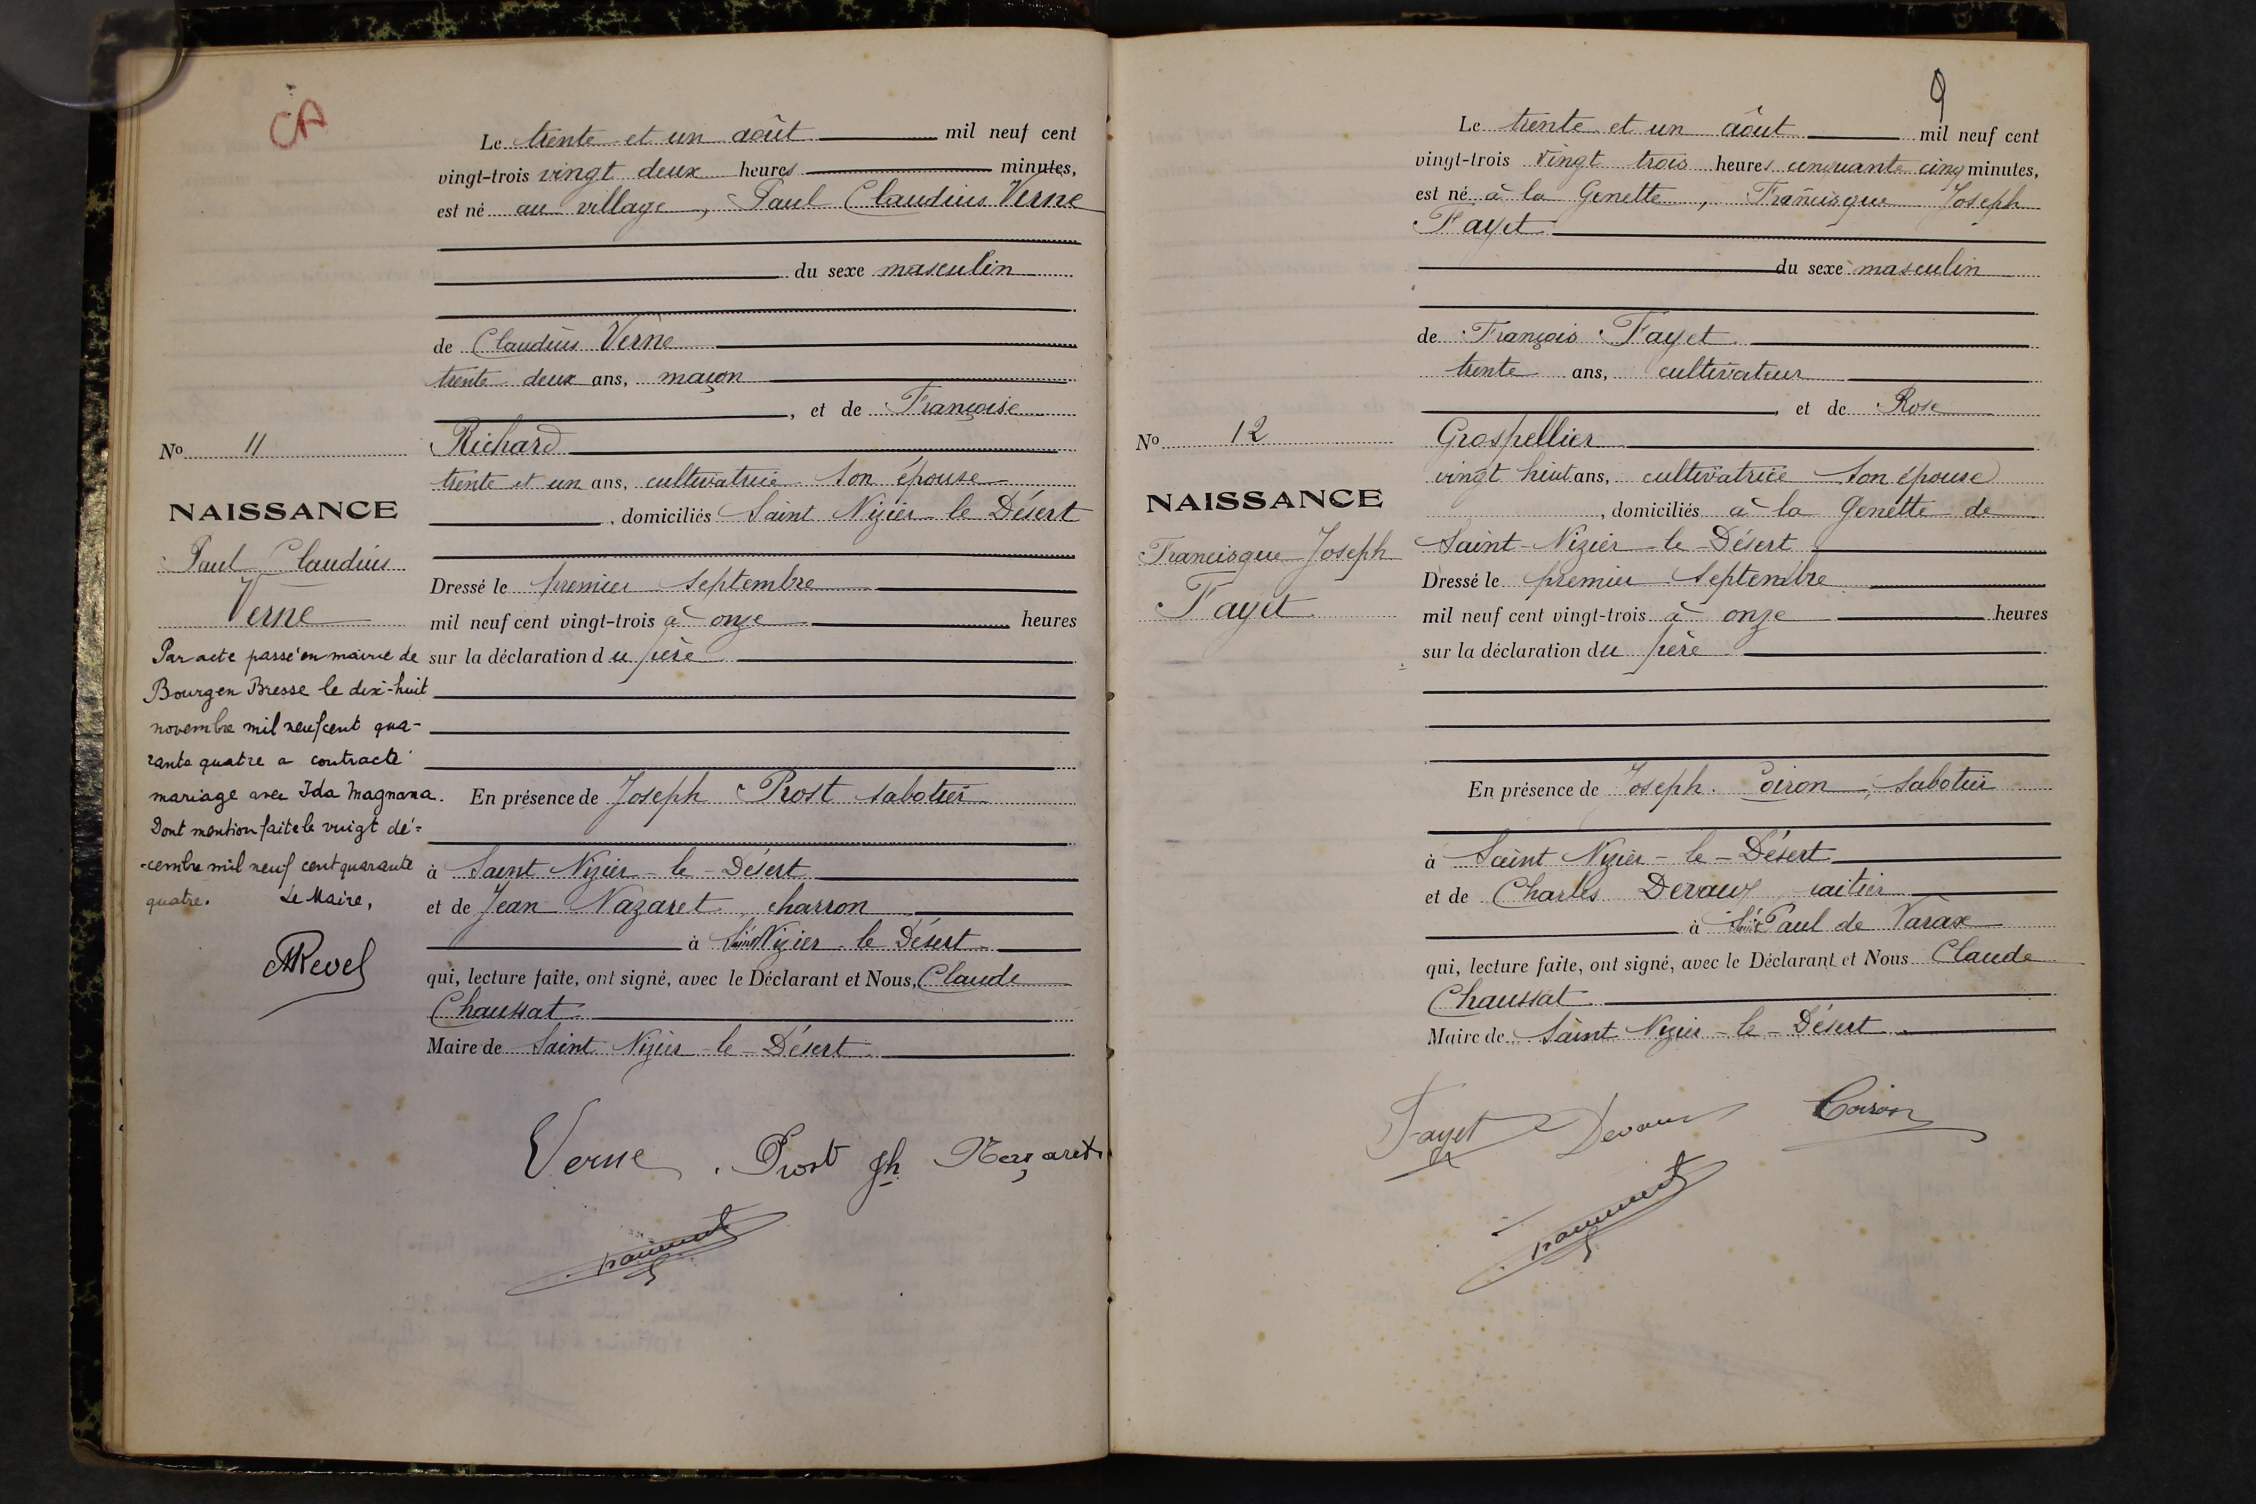 CA
Le trente et un août mil neuf cent
vingt-trois vingt deux heures minutes,
est né au village, Paul Claudius Verne
du sexe masculin
de Claudius Verne
trente deux ans, maçon
, et de Françoise
Richard
trente et un ans, cultivatrice son épouse
, domiciliés Saint Nizier le Désert
Dressé le premier septembre
mil neuf cent vingt-trois à onze heures
sur la déclaration du père
En présence de Joseph Prost sabotier
à Saint Nizier-le-Désert
et de Jean Nazaret, charron
à Saint Nizier le Désert
qui, lecture faite, ont signé, avec le Déclarant et Nous, Claude
Chaussat
Maire de Saint Nizier-le-Désert
Verne Prost Jh Nazaret
No 11
NAISSANCE
Paul Claudius
Verne
Par acte passé en mairie de
Bourg en Bresse le dix-huit
novembre mil neuf cent qua-
rante quatre a contracté
mariage avec Ida Magnana.
Dont mention faite le vingt dé-
-cembre mil neuf cent quarante
quatre. Le Maire,
Revel
9
Le trente et un août mil neuf cent
vingt-trois vingt trois heures cinquante cinq minutes,
est né à la Genette, Francisque Joseph
Fayet
du sexe masculin
de François Fayet
trente ans, cultivateur
, et de Rose
Grospellier
vingt huit ans, cultivatrice son épouse
, domiciliés à la Genette de
Saint-Nizier-le-Désert
Dressé le premier septembre
mil neuf cent vingt-trois à onze heures
sur la déclaration du père
En présence de Joseph Coiron, sabotier
à Saint Nizier-le-Désert
et de Charles Devaux laitier
à Saint Paul de Varax
qui, lecture faite, ont signé, avec le Déclarant et Nous Claude
Chaussat
Maire de Saint Nizier-le-Désert
Fayet Devaux Coiron
No 12
NAISSANCE
Francisque Joseph
Fayet